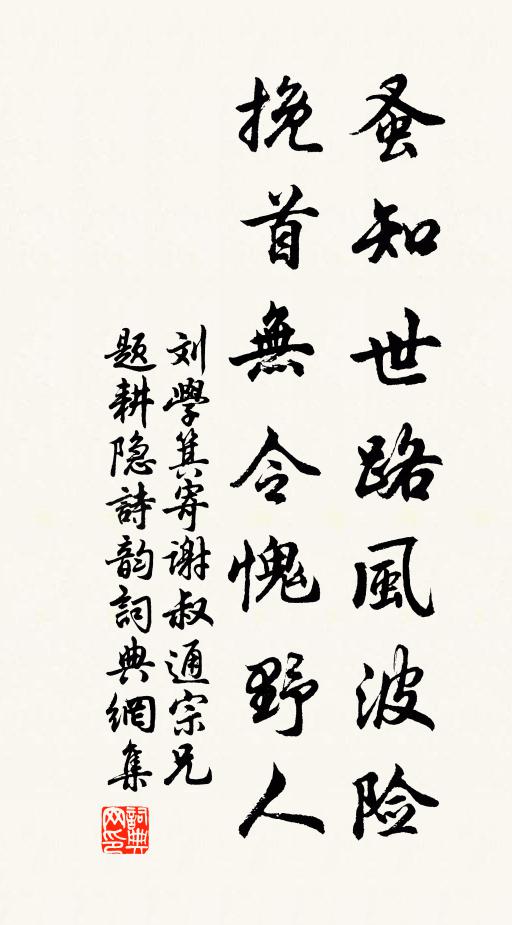 蚤知世路風波险
挽首無令愧野人
刘學箕寄谢叔通宗兄
题耕隐詩韵詞典網集
詞典網印